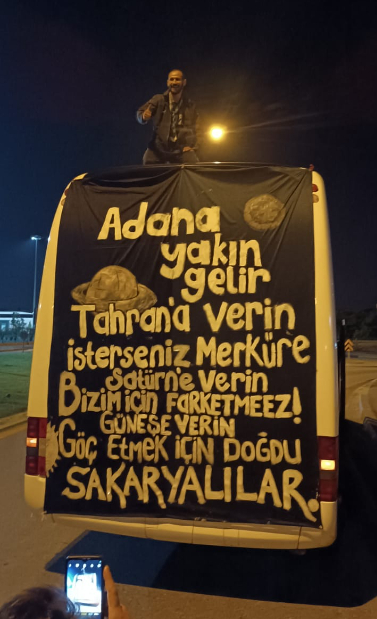 Adana
yakın
gelir
Tahran'a verin
isterseniz Merküre
Satürn'e verin
Bizim için farketmeez!
Güneşe verin
Göç etmek için doğdu
SAKARYALILAR.